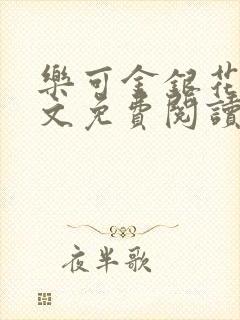 樂可金銀花
文免費閱讀
夜半歌